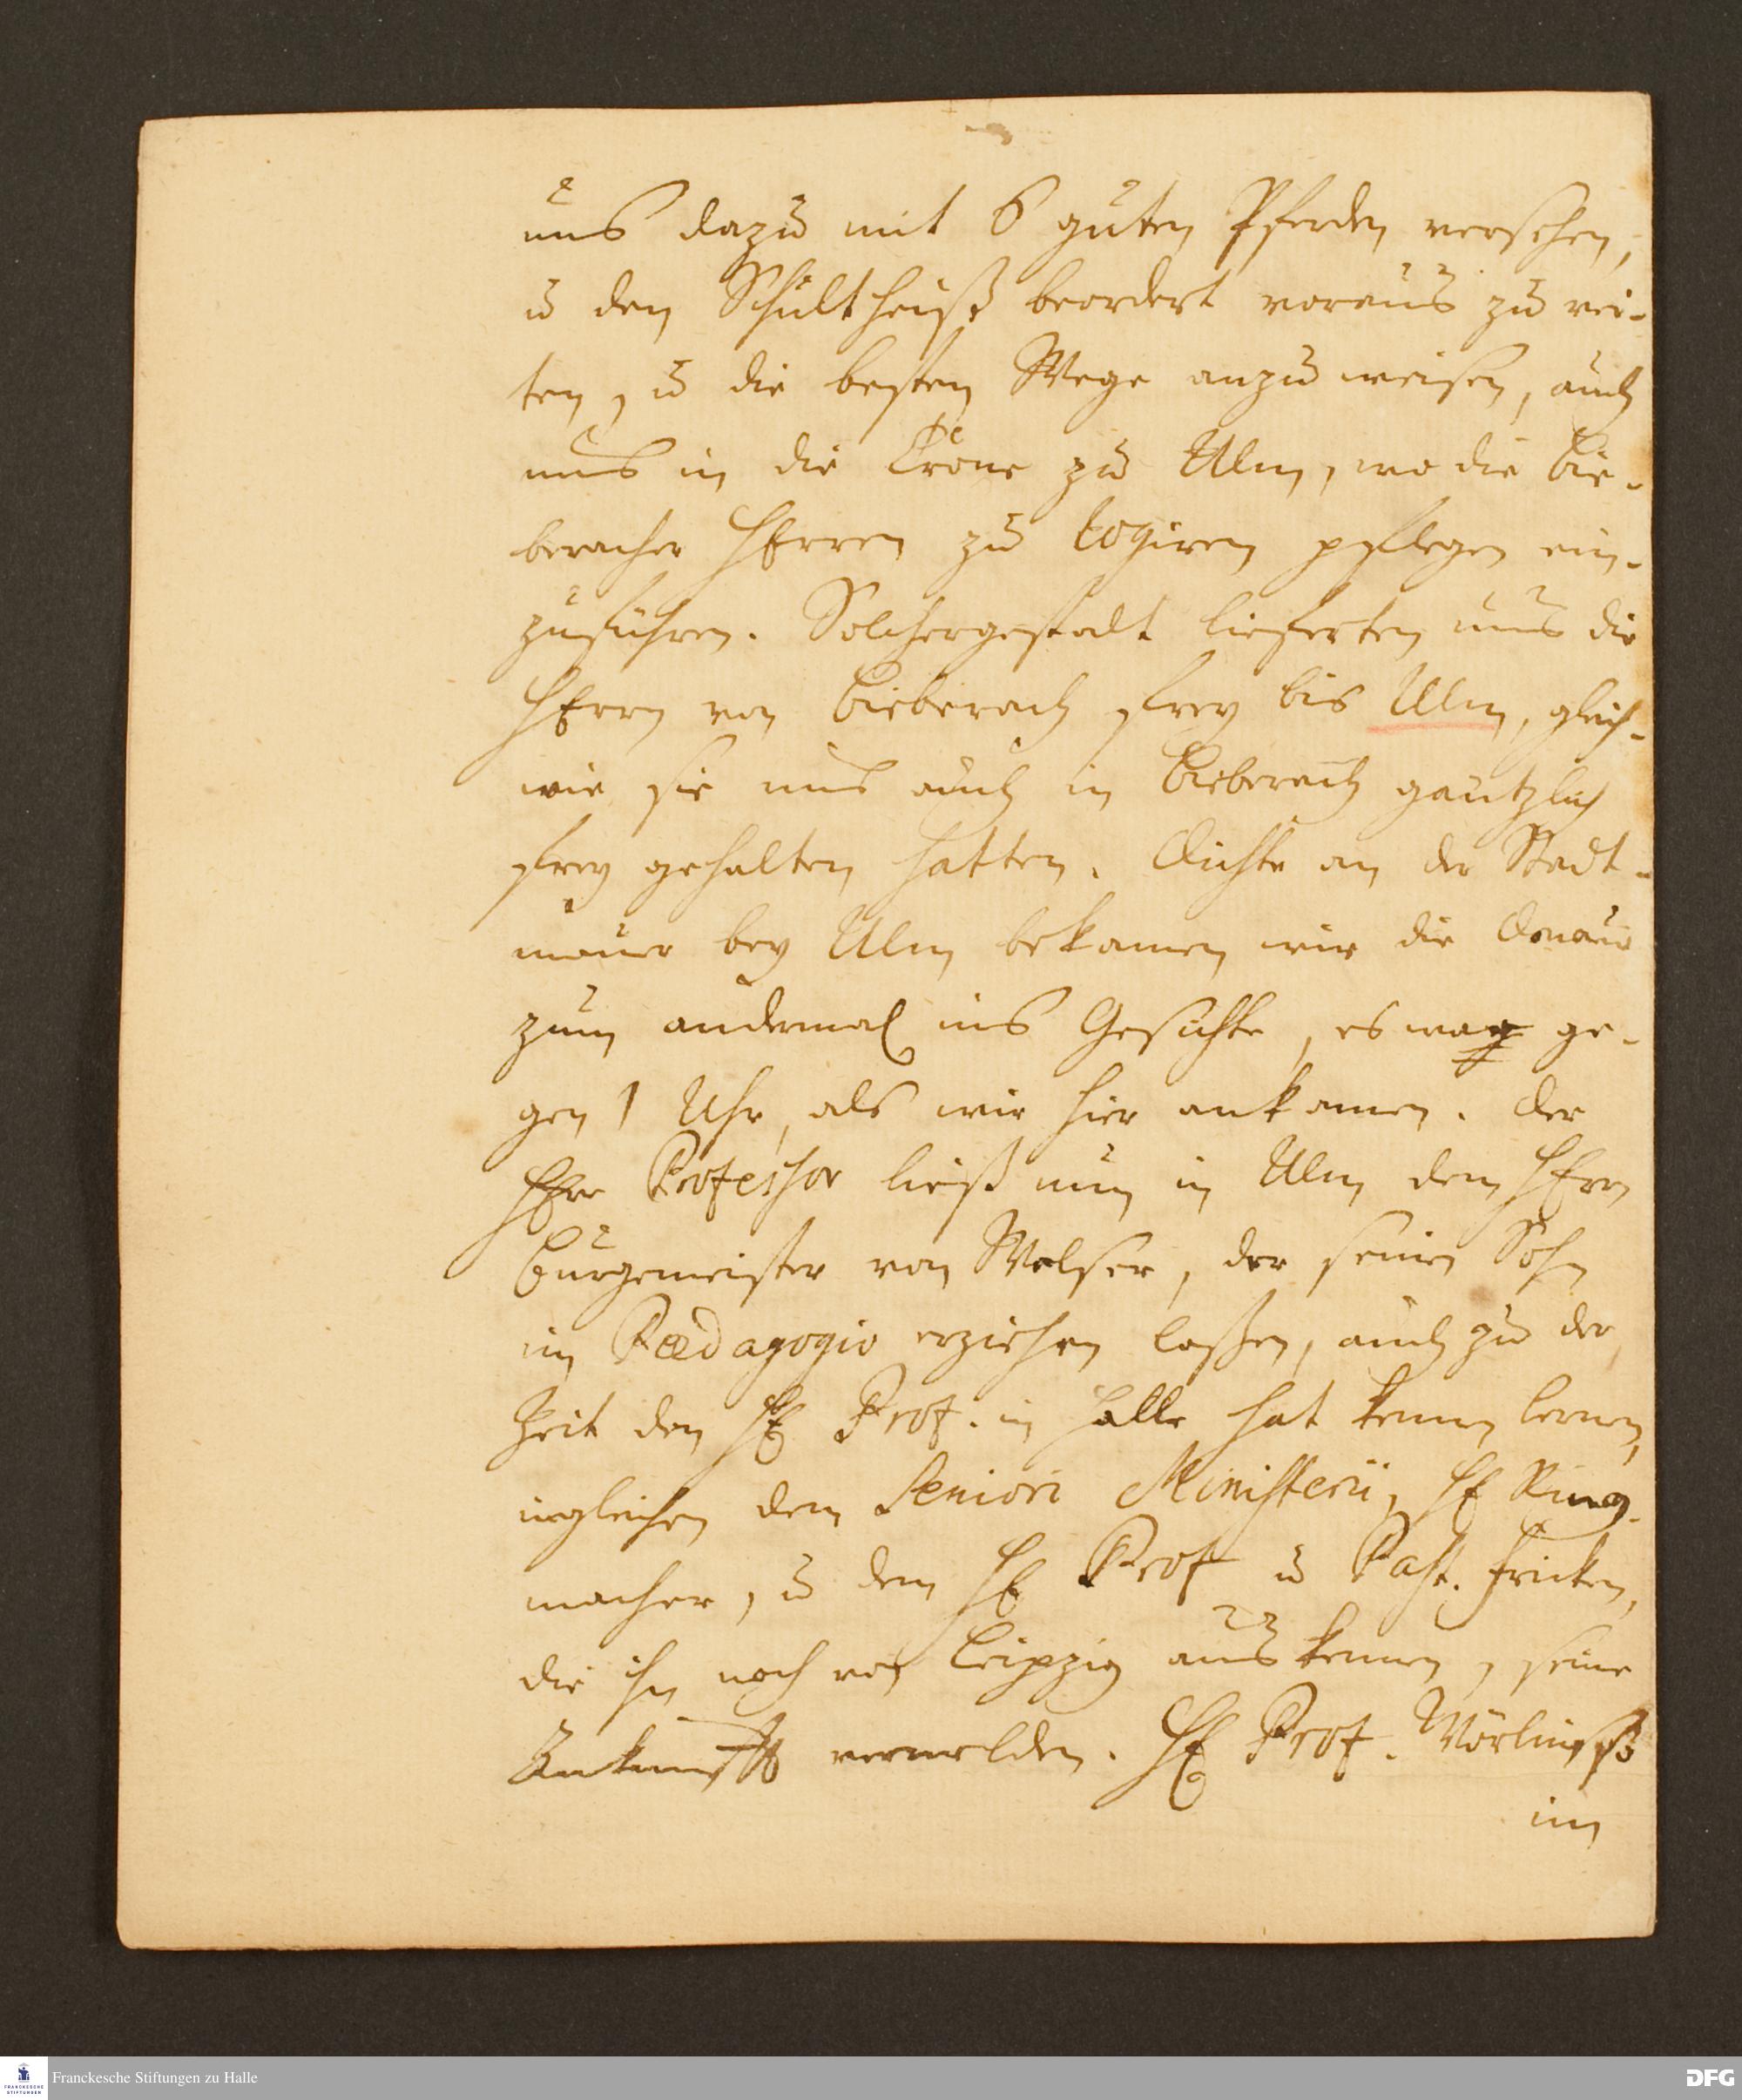 uns dazu mit 6 guten Pferden versehen,
u den Schultheiß beordert voraus zu rei-
ten, u die besten Wege anzuweisen, auch
uns in die Crone zu Ulm, wo die Bie-
beracher HErren zu logiren pflegen ein-
zuführen. Solchergestalt lieferten uns die
HErrn von Bieberach frey bis Ulm, gleich-
wie sie uns auch in Bieberach gäntzlich
frey gehalten hatten. Dichte an der Stadt-
mauer bey Ulm bekamen wir die Donau
zum andermal ins Gesichte, es war ge-
gen 1 Uhr, als wir hier ankamen. Der
HErr Professor ließ nun in Ulm dem HErrn
Burgemeister von Welser, der seinen Sohn
im Pædagogio erziehen laßen, auch zu der
Zeit den HE Prof. in Halle hat kennen lernen,
ingleichen dem Seniori Ministerii, HE
macher, u dem HE Prof u Past. Fricken,
die ihn noch von Leipzig aus kennen, seine
Ankunfft vermelden. HE Prof.
im
Franckesche Stiftungen zu Halle
FRANCKESCHE
STIFTUNGEN
DFG